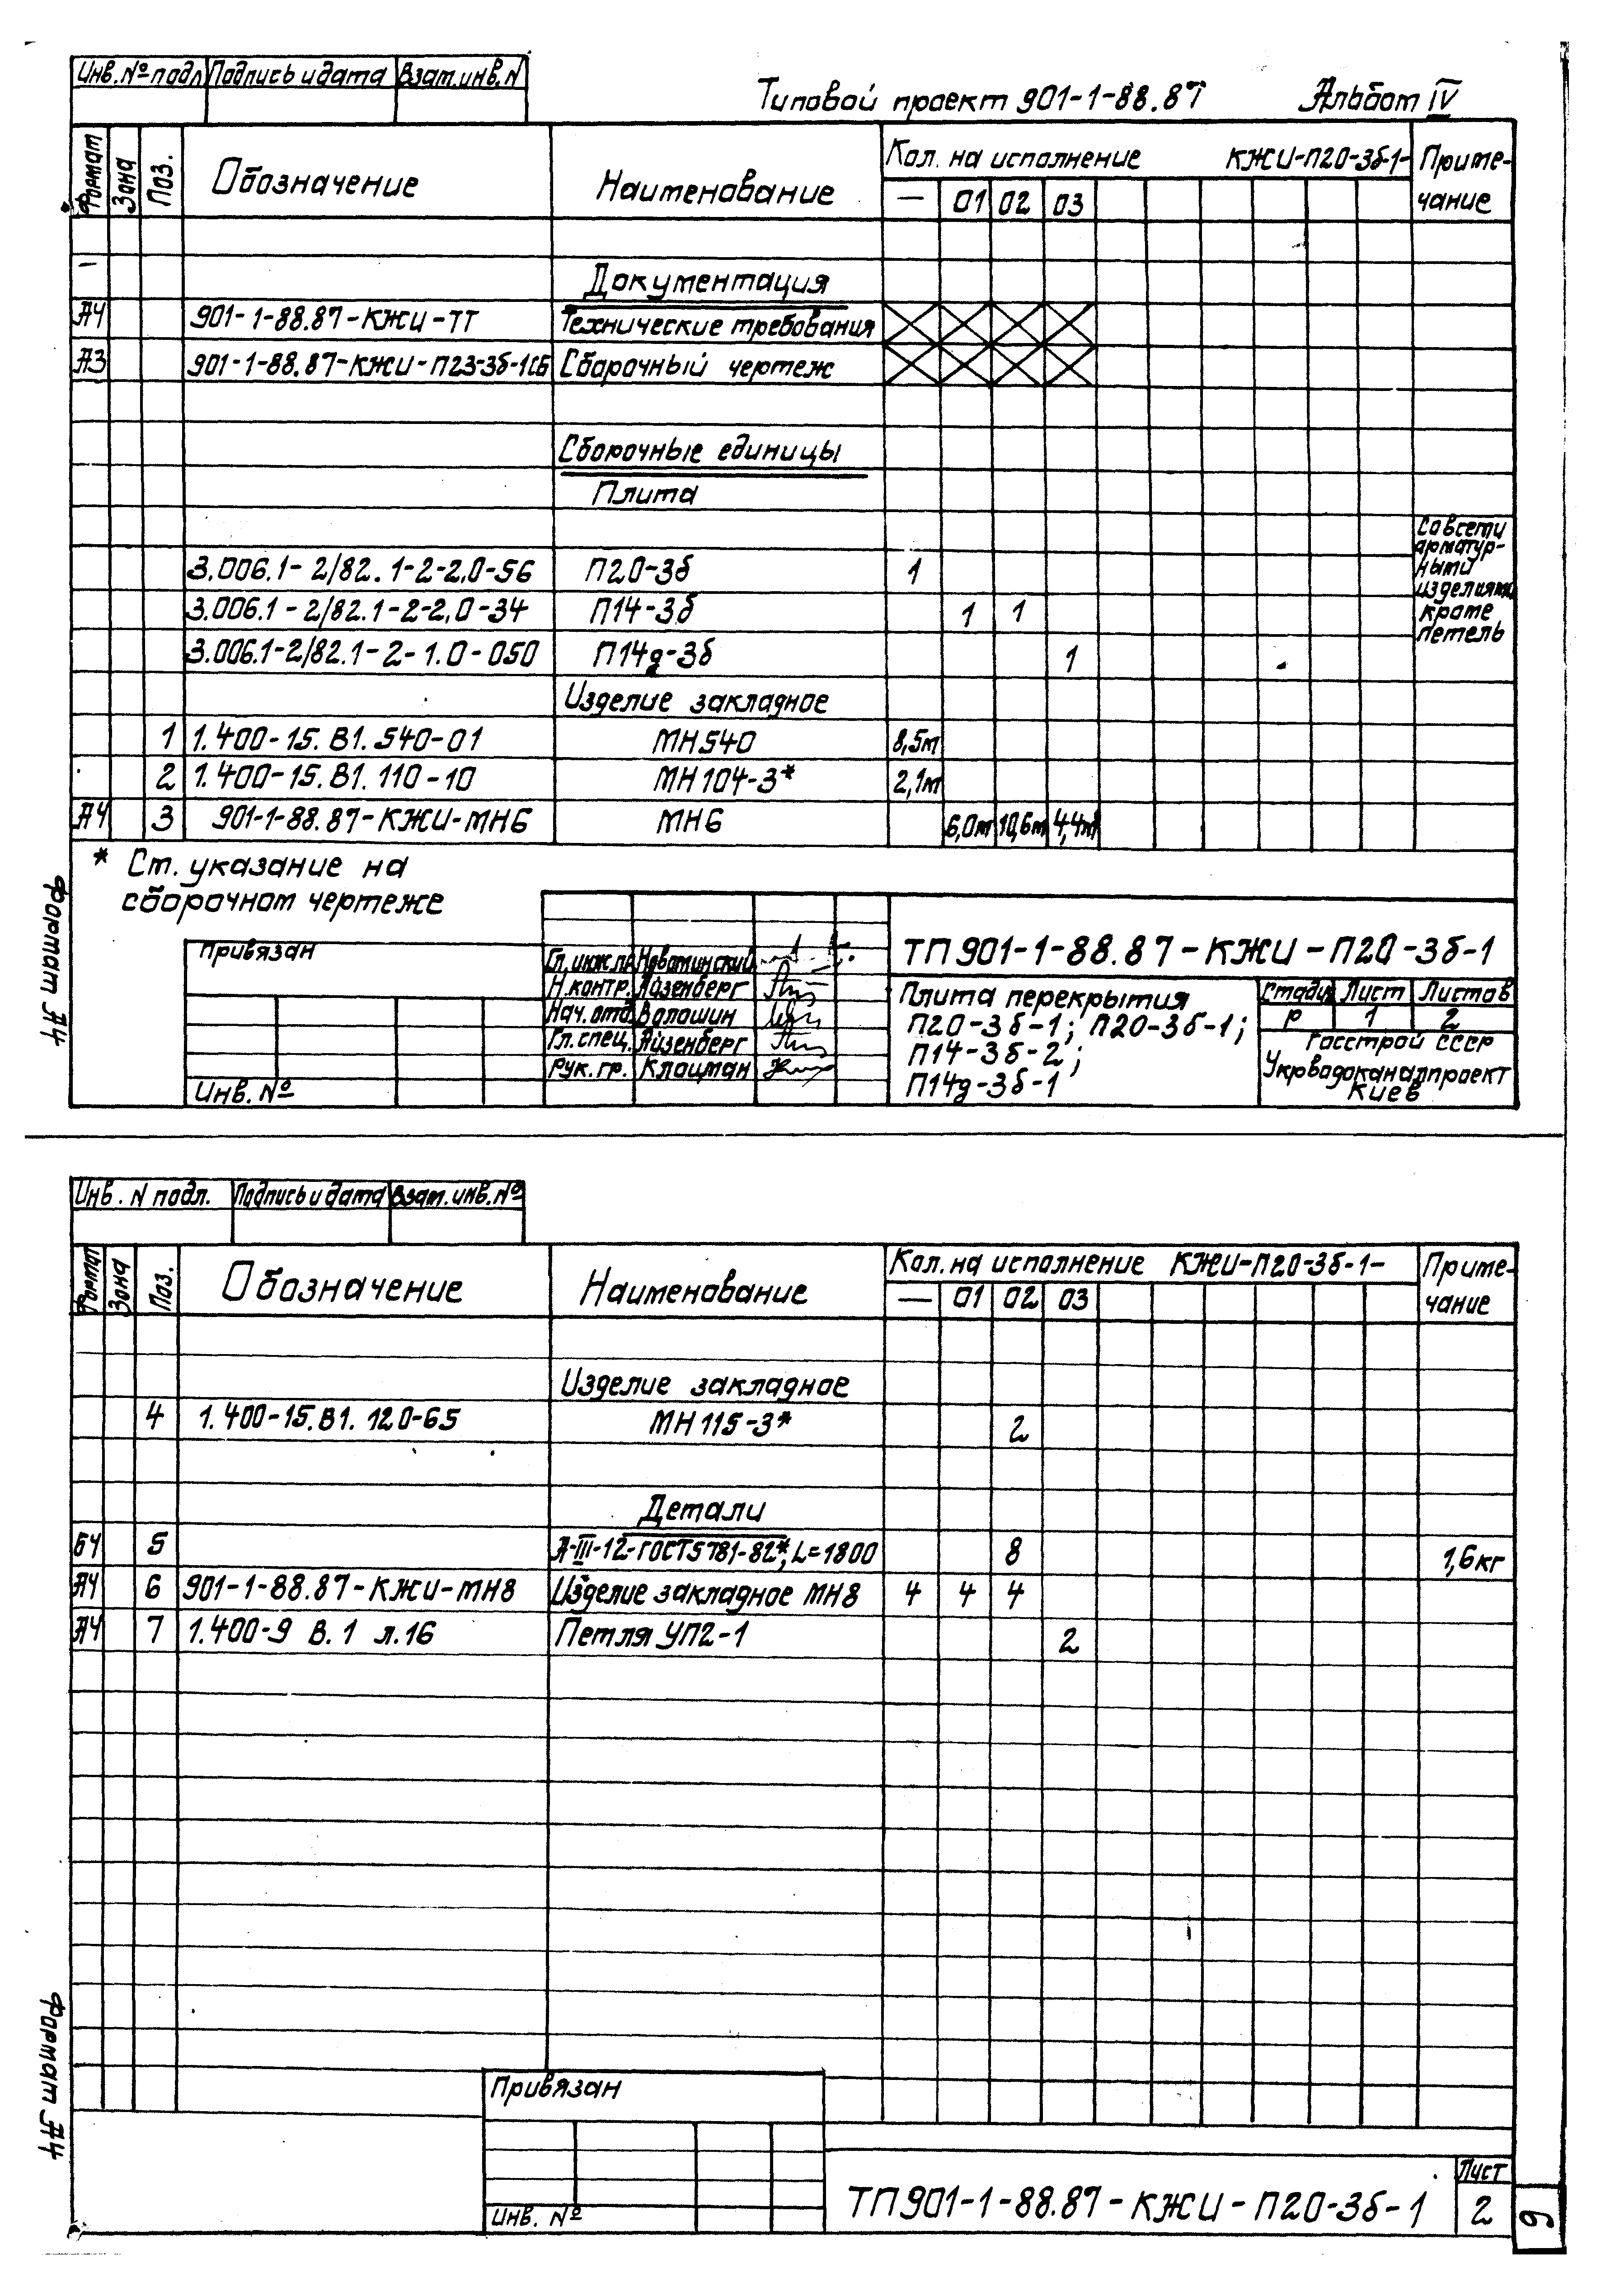 Инв. № подл Подпись и дата Взам. инв. N
Типовой проект 901-1-88.87 Альбом IV
Формат Зона Поз. Обозначение Наименование Кол. на исполнение КЖИ-П20-3б-1- Приме-
чание
— 01 02 03
Документация
А4 901-1-88.87-КЖИ-ТТ Технические требования
А3 901-1-88.87-КЖИ-П23-3б-1СБ Сборочный чертеж
Сборочные единицы
Плита
Со всеми
арматур-
ными
изделиями
кроме
петель
3.006.1-2/82.1-2-2.0-56 П20-3б 1
3.006.1-2/82.1-2-2.0-34 П14-3б 1 1
3.006.1-2/82.1-2-1.0-050 П14д-3б 1
Изделие закладное
1 1.400-15.В1.540-01 МН540 8,5м
2 1.400-15.В1.110-10 МН104-3* 2,1м
А4 3 901-1-88.87-КЖИ-МН6 МН6 6,0м 10,6м 4,4м
* См. указание на
сборочном чертеже
Формат А4
Привязан
Инв. №
Гл. инж. пр. Новоминский
Н. контр. Айзенберг
Нач. отд. Волошин
Гл. спец. Айзенберг
Рук. гр. Клоцман
ТП 901-1-88.87-КЖИ-П20-3б-1
Плита перекрытия
П20-3б-1; П20-3б-1;
П14-3б-2;
П14д-3б-1
Стадия Лист Листов
Р 1 2
Госстрой СССР
Укрводоканалпроект
Киев
Инв. N подл. Подпись и дата Взам. инв. №
Формат Зона Поз. Обозначение Наименование Кол. на исполнение КЖИ-П20-3б-1- Приме-
чание
— 01 02 03
Изделие закладное
4 1.400-15.В1.120-65 МН115-3* 2
Детали
БЧ 5 А-III-12-ГОСТ5781-82*, L=1800 8 1,6кг
А4 6 901-1-88.87-КЖИ-МН8 Изделие закладное МН8 4 4 4
А4 7 1.400-9 В.1 л.16 Петля УП2-1 2
Формат А4
Привязан
Инв. №
ТП 901-1-88.87-КЖИ-П20-3б-1
Лист
2
9